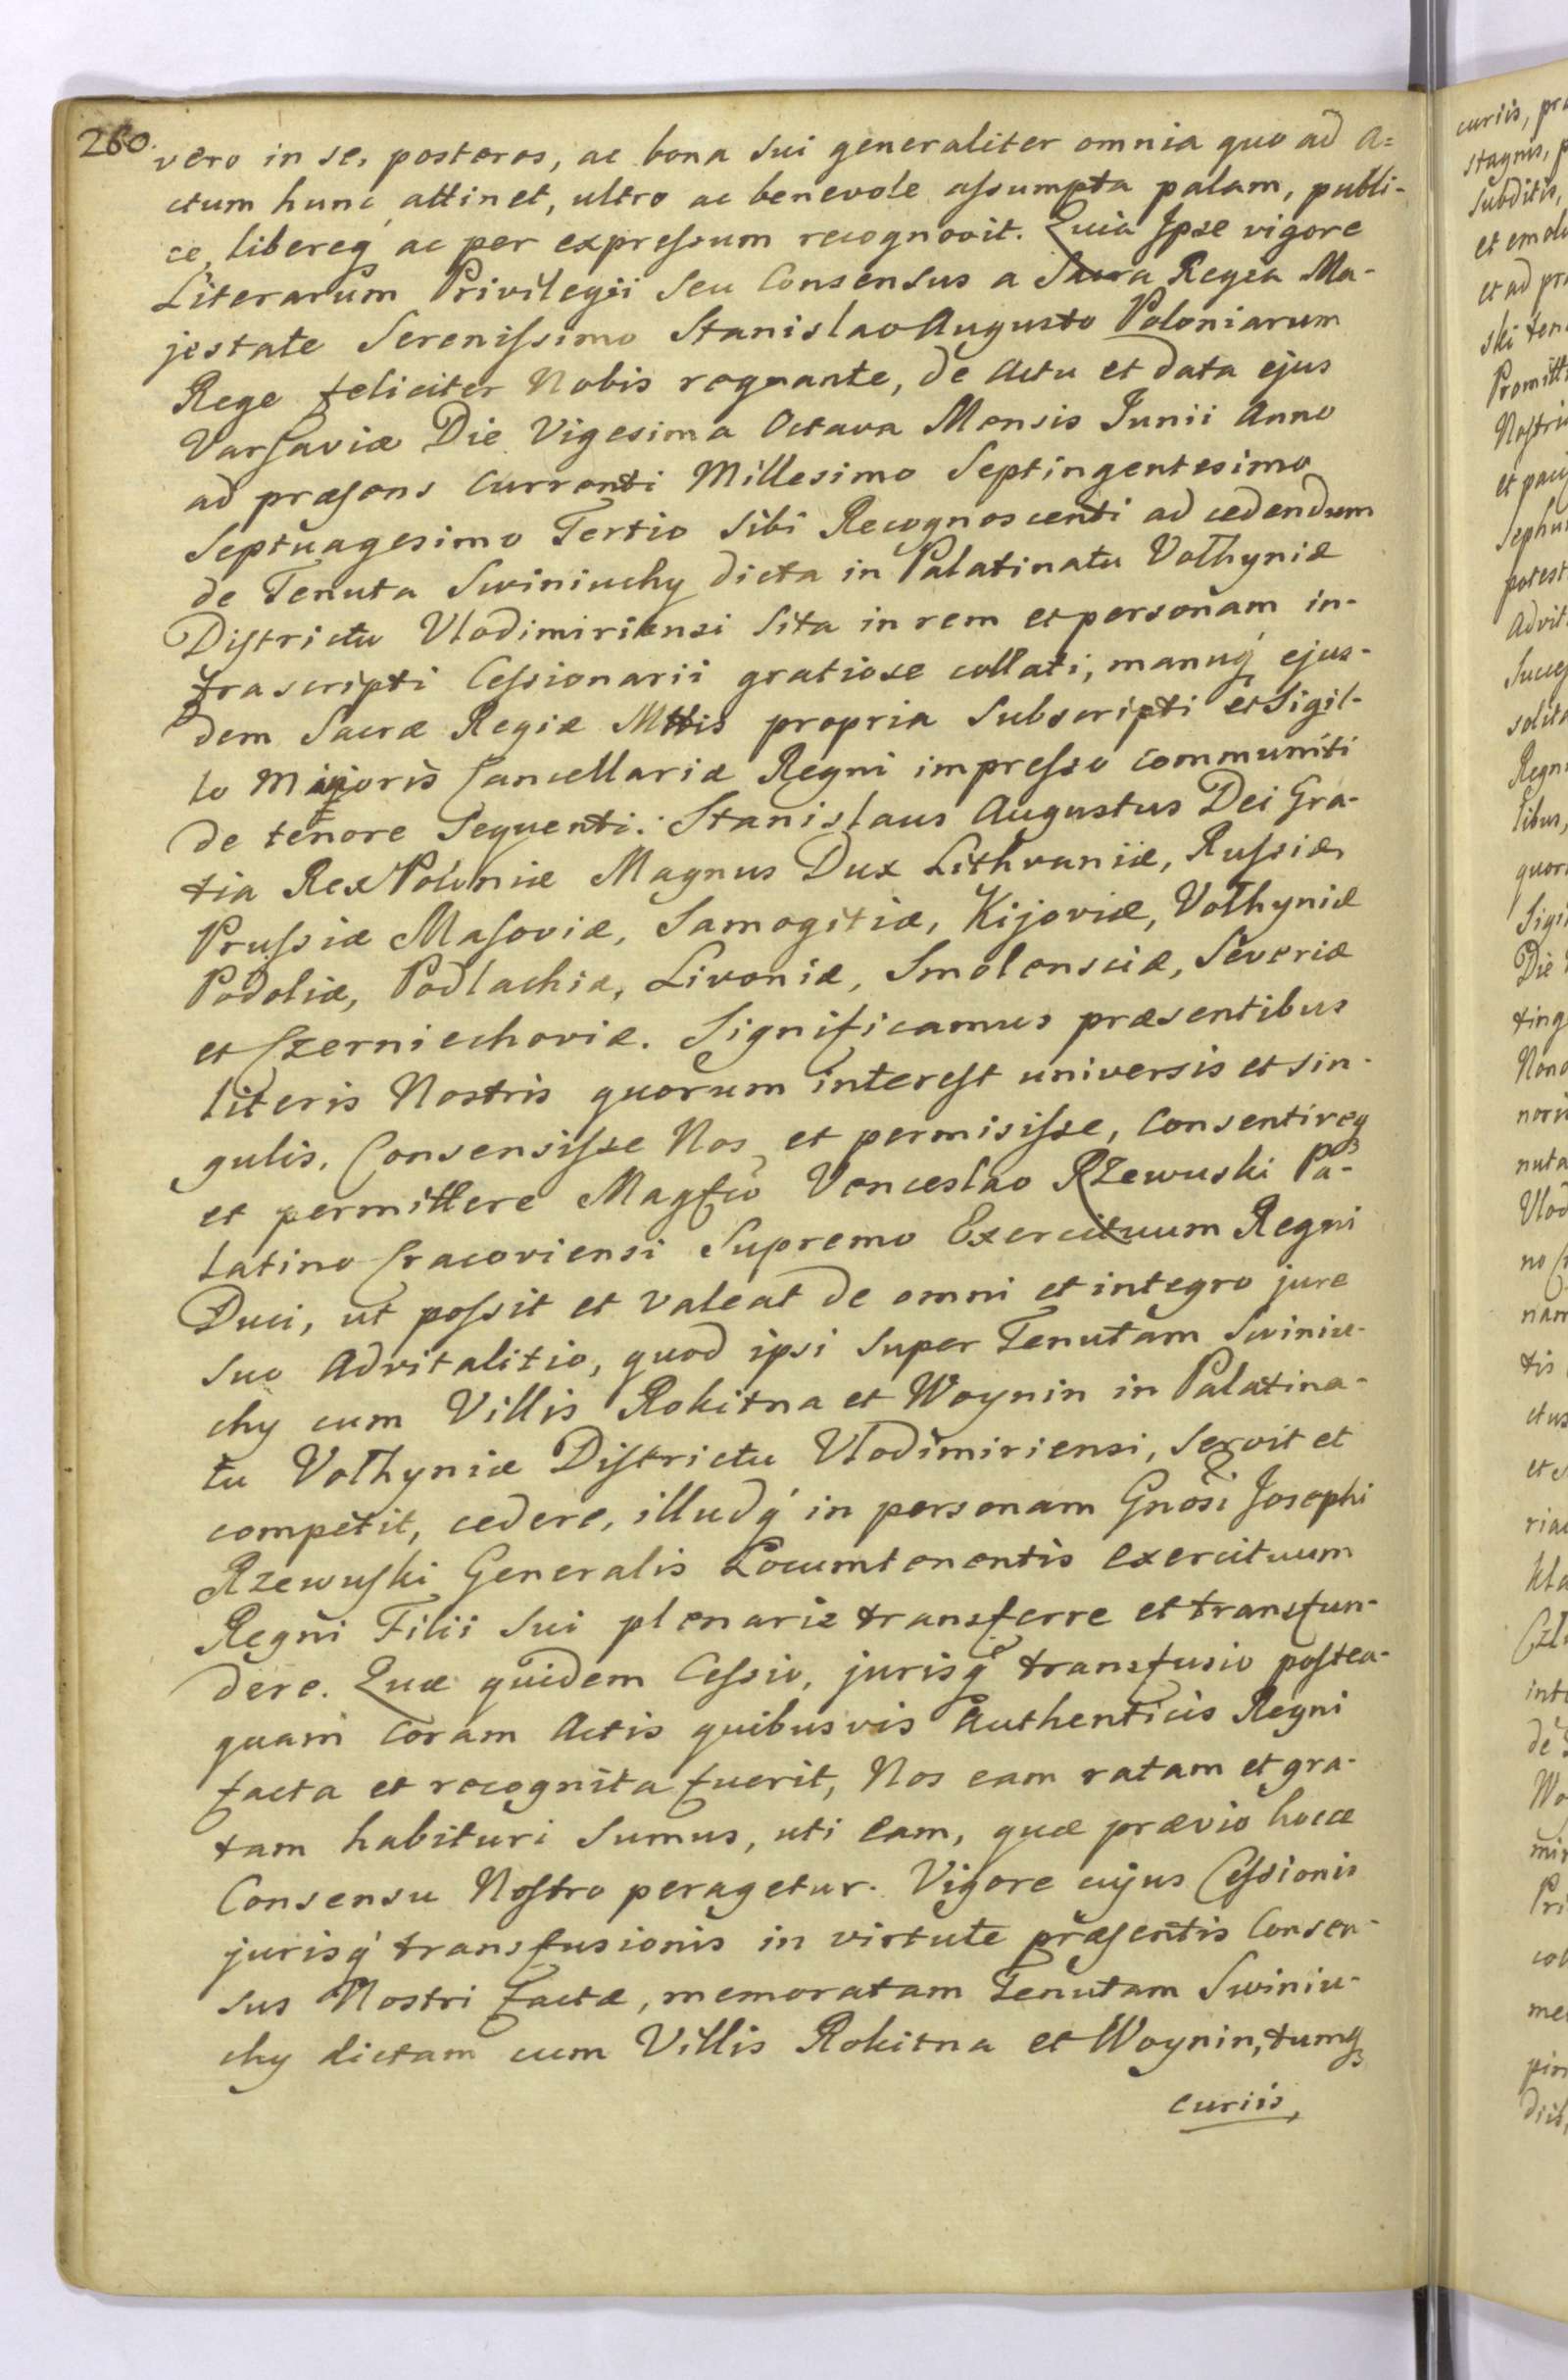 260.
vero in se, posteros, ac bona sui generaliter omnia quo ad a=
ctum hunc attinet, ultro ac benevole aſsumpta palam, publi-
ce, libereq́ ac per expreſsum recognovit. Quia Ipse vigore
Literarum Privilegii seu Consensus a Sacra Regia Ma-
jestate Sereniſsimo Stanislao Augusto Poloniarum
Rege feliciter Nobis regnante, de Actu et data ejus
Varſaviæ Die Vigesima Octava Mensis Junii Anno
ad præſens Currenti Millesimo Septingentesimo
Septuagesimo Tertio sibi Recognoscenti ad cedendum
de Tenuta Swiniuchy dicta in Palatinatu Volhyniæ
Diſtrictu Vlodimiriensi sita in rem et personam in-
frascripti Ceſsionarii gratiose collati, manuq́ ejus-
dem Sacræ Regiæ Mttis propria Subscripti et Sigil-
lo Majoris Cancellariæ Regni impreſso communiti
de tenore Sequenti: Stanislaus Augustus Dei Gra-
tia Rex Poloniæ Magnus Dux Lithvaniæ, Ruſsiæ,
Pruſsiæ Maſoviæ, Samogitiæ, Kijoviæ, Volhyniæ
Podoliæ, Podlachiæ, Livoniæ, Smolensciæ, Severiæ
et Czerniechoviæ. Significamus præsentibus
literis Nostris quorum intereſt universis et sin-
gulis, Consensiſse Nos, et permisiſse, Consentireq
et permittere Magfco Venceslao Rzewuski Pa-
latino Cracoviensi Supremo Exercituum Regni
Duci, ut poſsit et valeat de omni et integro jure
suo Advitalitio, quod ipsi super Tenutam Swiniu-
chy cum Villis Rokitna et Woynin in Palatina-
tu Volhyniæ Diſtrictu Vlodimiriensi, servit et
competit, cedere, illudq́ in personam Gnosi Josephi
Rzewuſki Generalis Locumtenentis exercituum
Regni Filii Sui plenarie transferre et transfun-
dere. Quæ quidem Ceſsio, jurisq́ transfusio poſtea-
quam Coram Actis quibusvis Authenticis Regni
facta et recognita fuerit, Nos eam ratam et gra-
tam habituri sumus, uti eam, quæ prævio hocce
Consensu Noſtro peragetur. Vigore cujus Ceſsionis
jurisq́ transfusionis in virtute præſentis Consen-
sus Nostri factæ, memoratam Tenutam Swiniu-
chy dictam cum Villis Rokitna et Woynin, tumq
curiis,